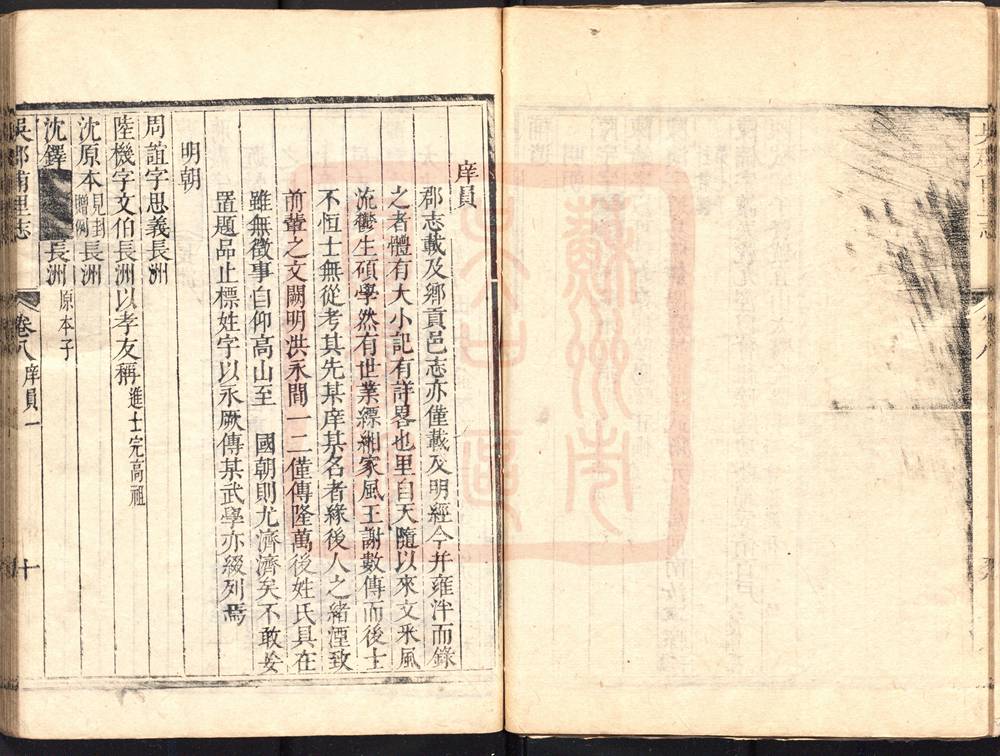 庠員
郡志載及鄉貢邑志亦僅載及明經今并雍泮而錄
之者體有大小記有詳畧也里自天隨以來文釆風
流鬱生碩學然有世業縹緗家風王謝數傳而後士
不恆士無從考其先某庠某名者緣後人之緒湮致
前軰之文闕明洪永間一二僅傳隆萬後姓氏具在
雖無徵事自仰高山至 國朝則尤濟濟矣不敢妄
置題品止標姓字以永厥傳某武學亦綴列焉
明朝
周誼字思義長洲
陸機字文伯長洲以孝友稱進士完高祖
沈原本見封贈例長洲
沈鐸 長洲原本子
吳郡甫里志 卷八庠員一 十